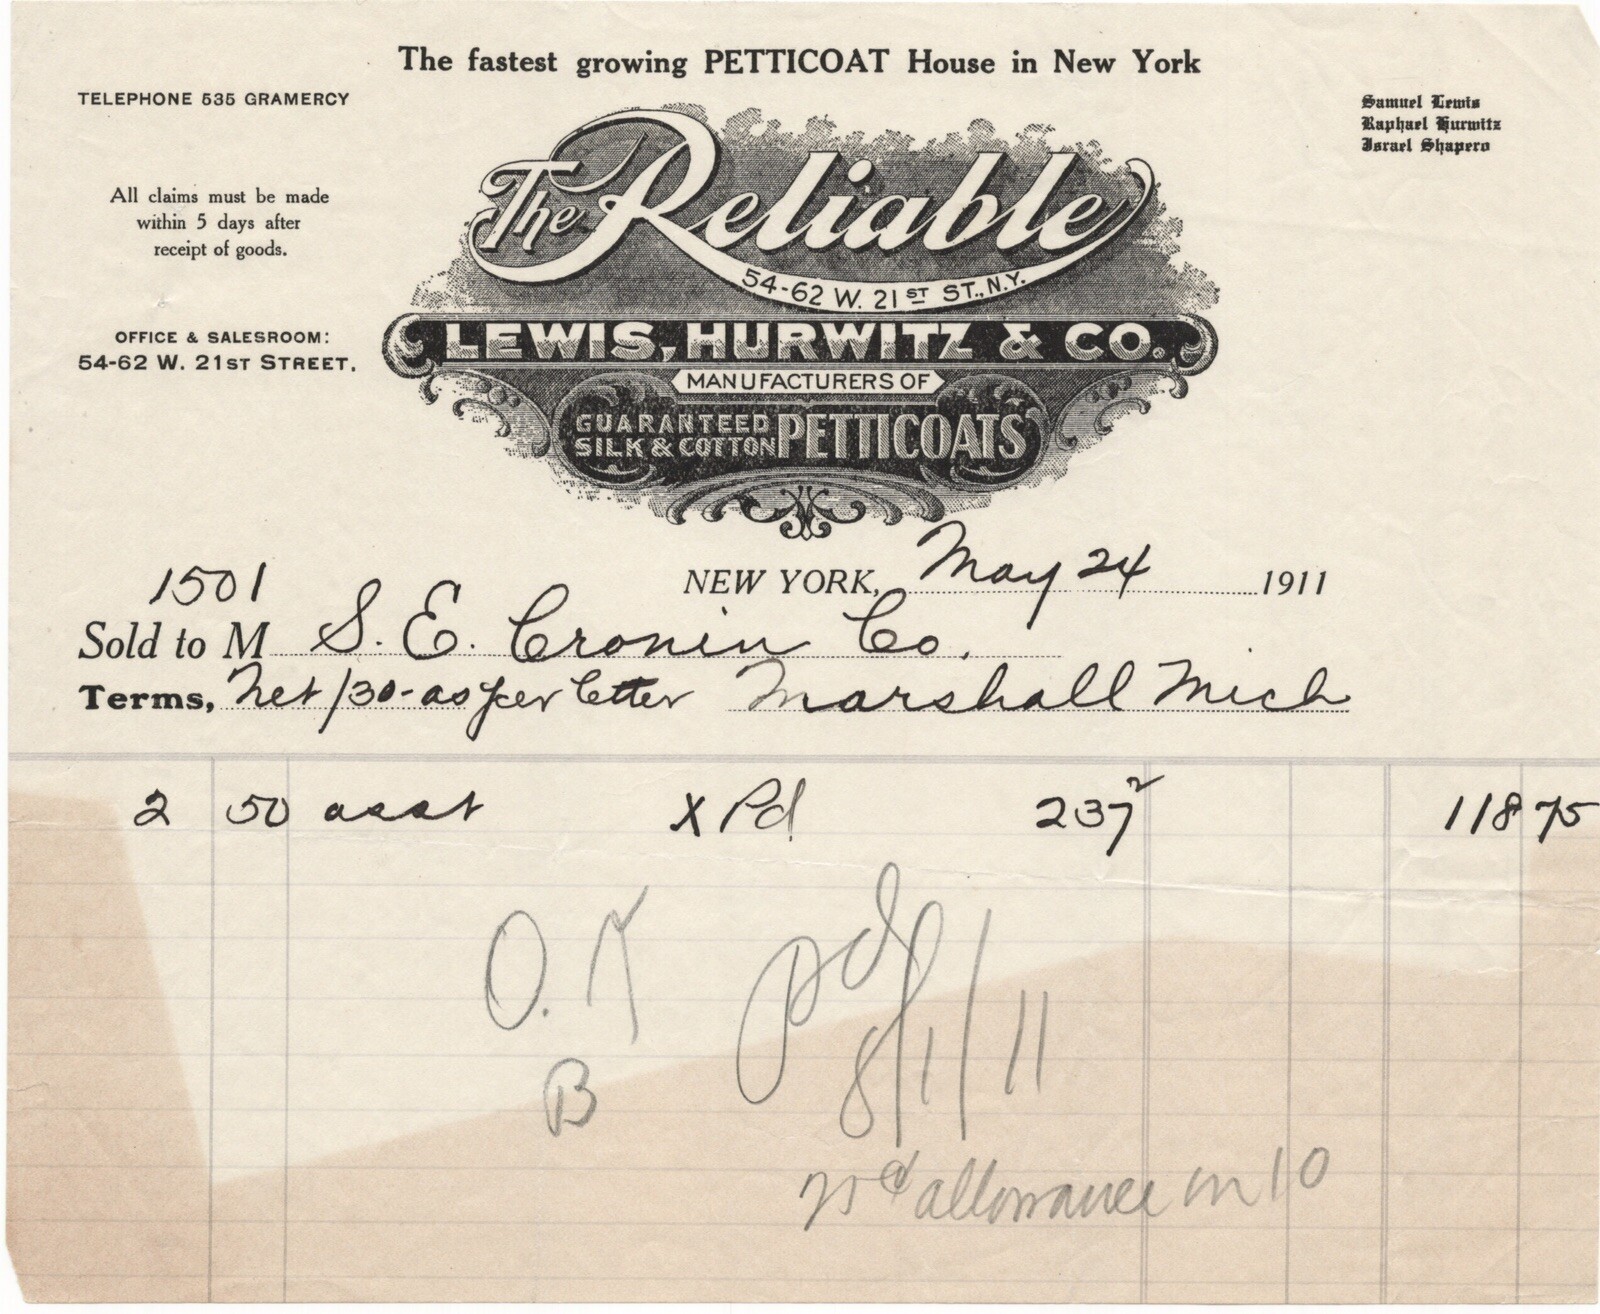 The fastest growing PETTICOAT House in New York
TELEPHONE 535 GRAMERCY
Samuel Lewis
Raphael Hurwitz
Israel Shapero
All claims must be made
within 5 days after
receipt of goods.
The Reliable
54-62 W. 21ST ST., N.Y.
OFFICE & SALESROOM:
54-62 W. 21ST STREET.
LEWIS, HURWITZ & CO.
MANUFACTURERS OF
GUARANTEED
SILK & COTTON PETTICOATS
1501
NEW YORK, May 24 1911
Sold to M S. E. Cronin Co.
Terms, Net/30-as per letter Marshall Mich
2 50 asst X Pd 237 2 118 75
O.K
B
pd
8/1/11
allowance on 10